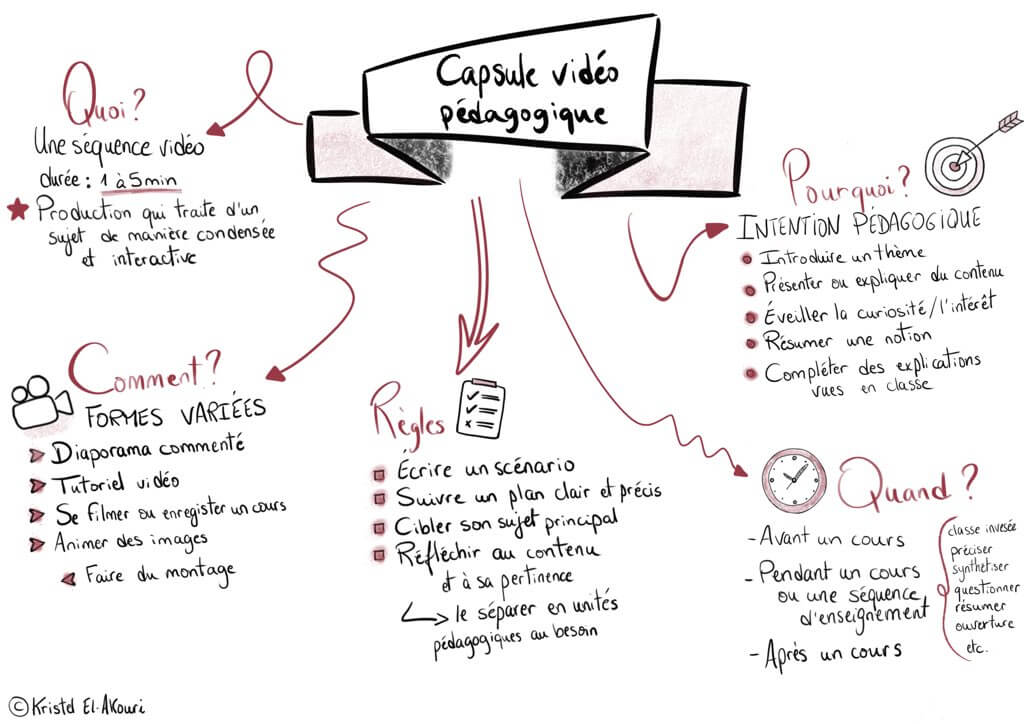 Capsule vidéo
pédagogique
Quoi?
Une séquence vidéo
durée : 1 à 5min
Production qui traite d'un
sujet de manière condensée
et interactive
Pourquoi?
INTENTION PÉDAGOGIQUE
Introduire un thème
Présenter ou expliquer du contenu
Éveiller la curiosité/l'intérêt
Résumer une notion
Compléter des explications
vues en classe
Comment?
FORMES VARIÉES
Diaporama commenté
Tutoriel vidéo
Se filmer ou enregister un cours
Animer des images
Faire du montage
Règles
Écrire un scénario
Suivre un plan clair et précis
Cibler son sujet principal
Réfléchir au contenu
et à sa pertinence
le séparer en unités
pédagogiques au besoin
Quand?
- Avant un cours
- Pendant un cours
ou une séquence
d'enseignement
- Après un cours
classe invesée
préciser
synthétiser
questionner
résumer
ouverture
etc.
© Kristel El-Akouri